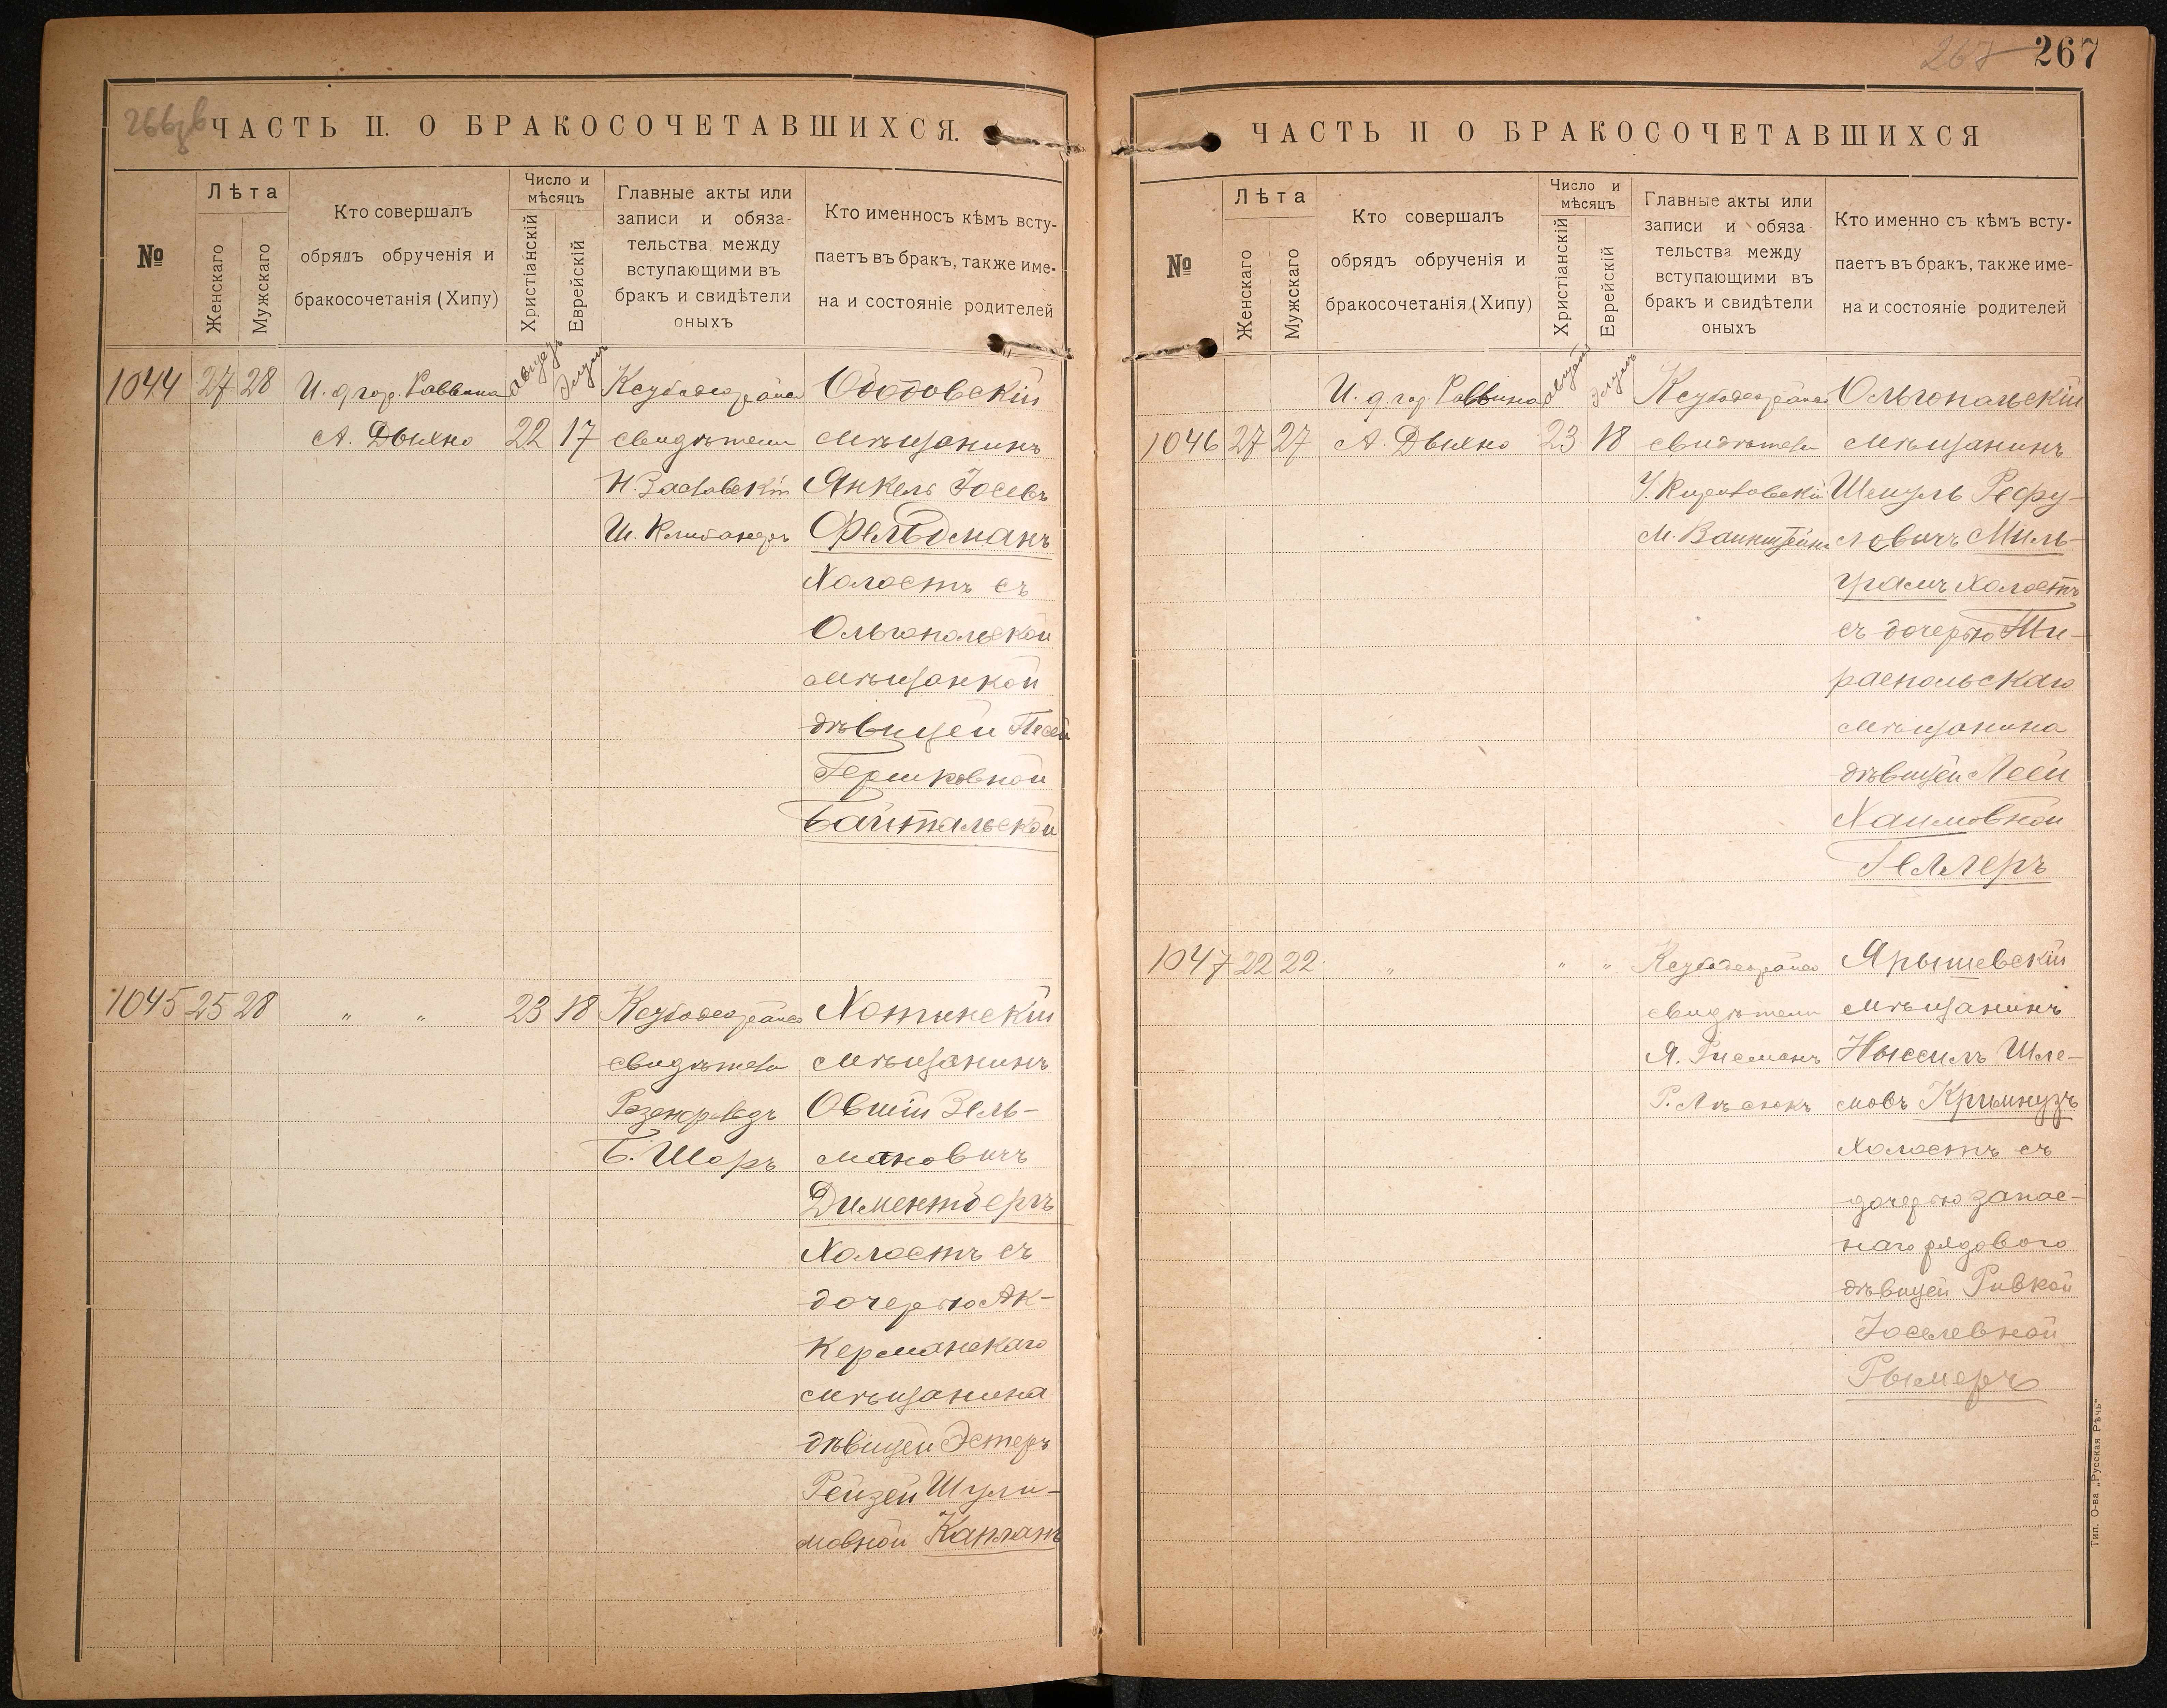 266об
ЧАСТЬ II. О БРАКОСОЧЕТАВШИХСЯ.
№
Лѣта
Женскаго
Мужскаго
Кто совершалъ
обрядъ обрученія и
бракосочетанія (Хипу)
Число и
мѣсяцъ
Христіанскій
Еврейскій
Главные акты или
записи и обяза-
тельства между
вступающими въ
бракъ и свидѣтели
оныхъ
Кто именносъ кѣмъ всту-
паетъ въ бракъ, также име-
на и состояніе родителей
1044 27 28
И. д. гор. Раввина
А. Дыхно
22 17
свидѣтели
Н. Заславскій
Ободовскій
мѣщанинъ
Янкель Іосевъ
Фельдманъ
Холостъ съ
Ольгопольской
мѣщанкой
дѣвицей Песей
Гершковной
Байтальской
1045 25 28 " " 23 18
свидѣтели
Б. Шоръ
Хотинскій
мѣщанинъ
Овшій Зель-
мановичъ
Диментбергъ
Холостъ съ
дочерью Ак-
керманскаго
мѣщанина
дѣвицей Эстеръ
Рейзей Шули-
мовной Капланъ
267 267
ЧАСТЬ II О БРАКОСОЧЕТАВШИХСЯ
№
Лѣта
Женскаго
Мужскаго
Кто совершалъ
обрядъ обрученія и
бракосочетанія (Хипу)
Число и
мѣсяцъ
Христіанскій
Еврейскій
Главные акты или
записи и обяза
тельства между
вступающими въ
бракъ и свидѣтели
оныхъ
Кто именно съ кѣмъ всту-
паетъ въ бракъ, также име-
на и состояніе родителей
1046 27 27
И. д. гор. Раввина
А. Дыхно
23 18
свидѣтели
М. Ванштейнъ
Ольгопольскій
мѣщанинъ
Шмуль Рефу-
ловичъ Миль-
грамъ Холостъ
съ дочерью Ти-
распольскаго
мѣщанина
дѣвицей Леей
Хаимовной
Геллеръ
1047 22 22 " " "
свидѣтели
Я. Гисманъ
Ярышевскій
мѣщанинъ
Ныссилъ Шле-
мовъ Кримнузъ
Холостъ съ
дочерью запас-
наго рядового
дѣвицей Ривкой
Іоселевной
Рымеръ
Тип. О-ва „Русская Рѣчь"